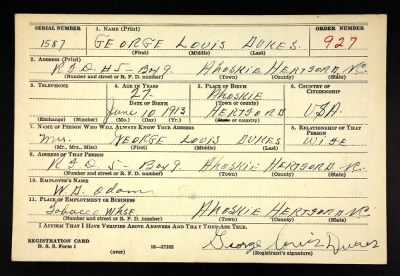 SERIAL NUMBER 1. NAME (Print) ORDER NUMBER
1587 GEORGE LOUIS DUKES. 927
(First) (Middle) (Last)
2. ADDRESS (Print)
R.F.D #5-Box 9. AHOSKIE HERTFORD N.C.
(Number and street or R. F. D. number) (Town) (County) (State)
3. TELEPHONE 4. AGE IN YEARS 5. PLACE OF BIRTH 6. COUNTRY OF CITIZENSHIP
27. AHOSKIE
DATE OF BIRTH (Town or county)
June 10 1913 HERTFORD U.S.A.
(Exchange) (Number) (Mo.) (Day) (Yr.) (State or country)
7. NAME OF PERSON WHO WILL ALWAYS KNOW YOUR ADDRESS 8. RELATIONSHIP OF THAT PERSON
Mrs. GEORGE LOUIS DUKES WIFE
(Mr., Mrs., Miss) (First) (Middle) (Last)
9. ADDRESS OF THAT PERSON
R.F.D 5- Box 9. AHOSKIE HERTFORD N.C.
(Number and street or R. F. D. number) (Town) (County) (State)
10. EMPLOYER'S NAME
W.D. Odom
11. PLACE OF EMPLOYMENT OR BUSINESS
Tobacco Whse AHOSKIE HERTFORD N.C.
(Number and street or R. F. D. number) (Town) (County) (State)
I AFFIRM THAT I HAVE VERIFIED ABOVE ANSWERS AND THAT THEY ARE TRUE.
REGISTRATION CARD George Louis Dukes
D. S. S. Form 1 (over) 16—17105 (Registrant's signature)